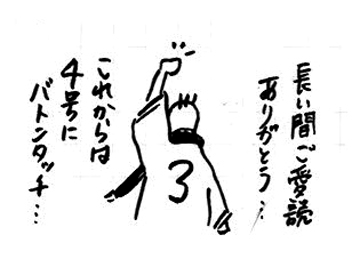 長い間ご愛読
ありがとう…
3
これからは
4号に
バトンタッチ…